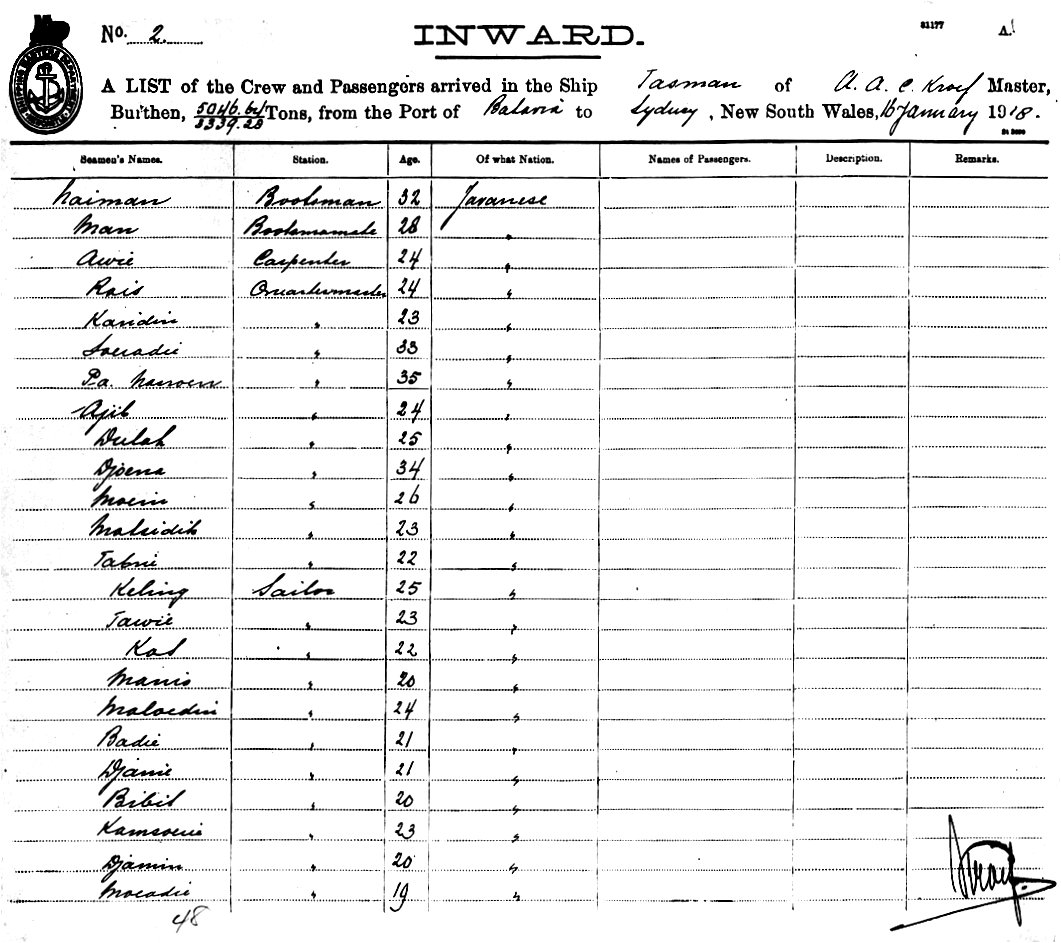 No. 2. INWARD. 31177 A.
A LIST of the Crew and Passengers arrived in the Ship Tasman of A. A. C. Kroef Master,
Burthen, 5046.64 Tons, from the Port of Batavia to Sydney, New South Wales, 16 January 1918.
5339.28
Seamen's Names. Station. Age. Of what Nation. Names of Passengers. Description. Remarks.
Naiman Bootsman 32 Javanese
Man Bootsmamate 28 "
Awie Carpenter 24 "
Rais Quartermaster 24 "
Karidin " 23 "
Soeradie " 33 "
Pa. " 35 "
Ajib " 24 "
Dulah " 25 "
Djoena " 34 "
Moein " 26 "
Matsidik " 23 "
Tabrie " 22 "
Keling Sailor 25 "
Tawie " 23 "
" 22 "
Manis " 20 "
" 24 "
Badie " 21 "
Djanie " 21 "
Bibit " 20 "
Kamsoerie " 23 "
Djamin " 20 "
Moeadie " 19 "
48